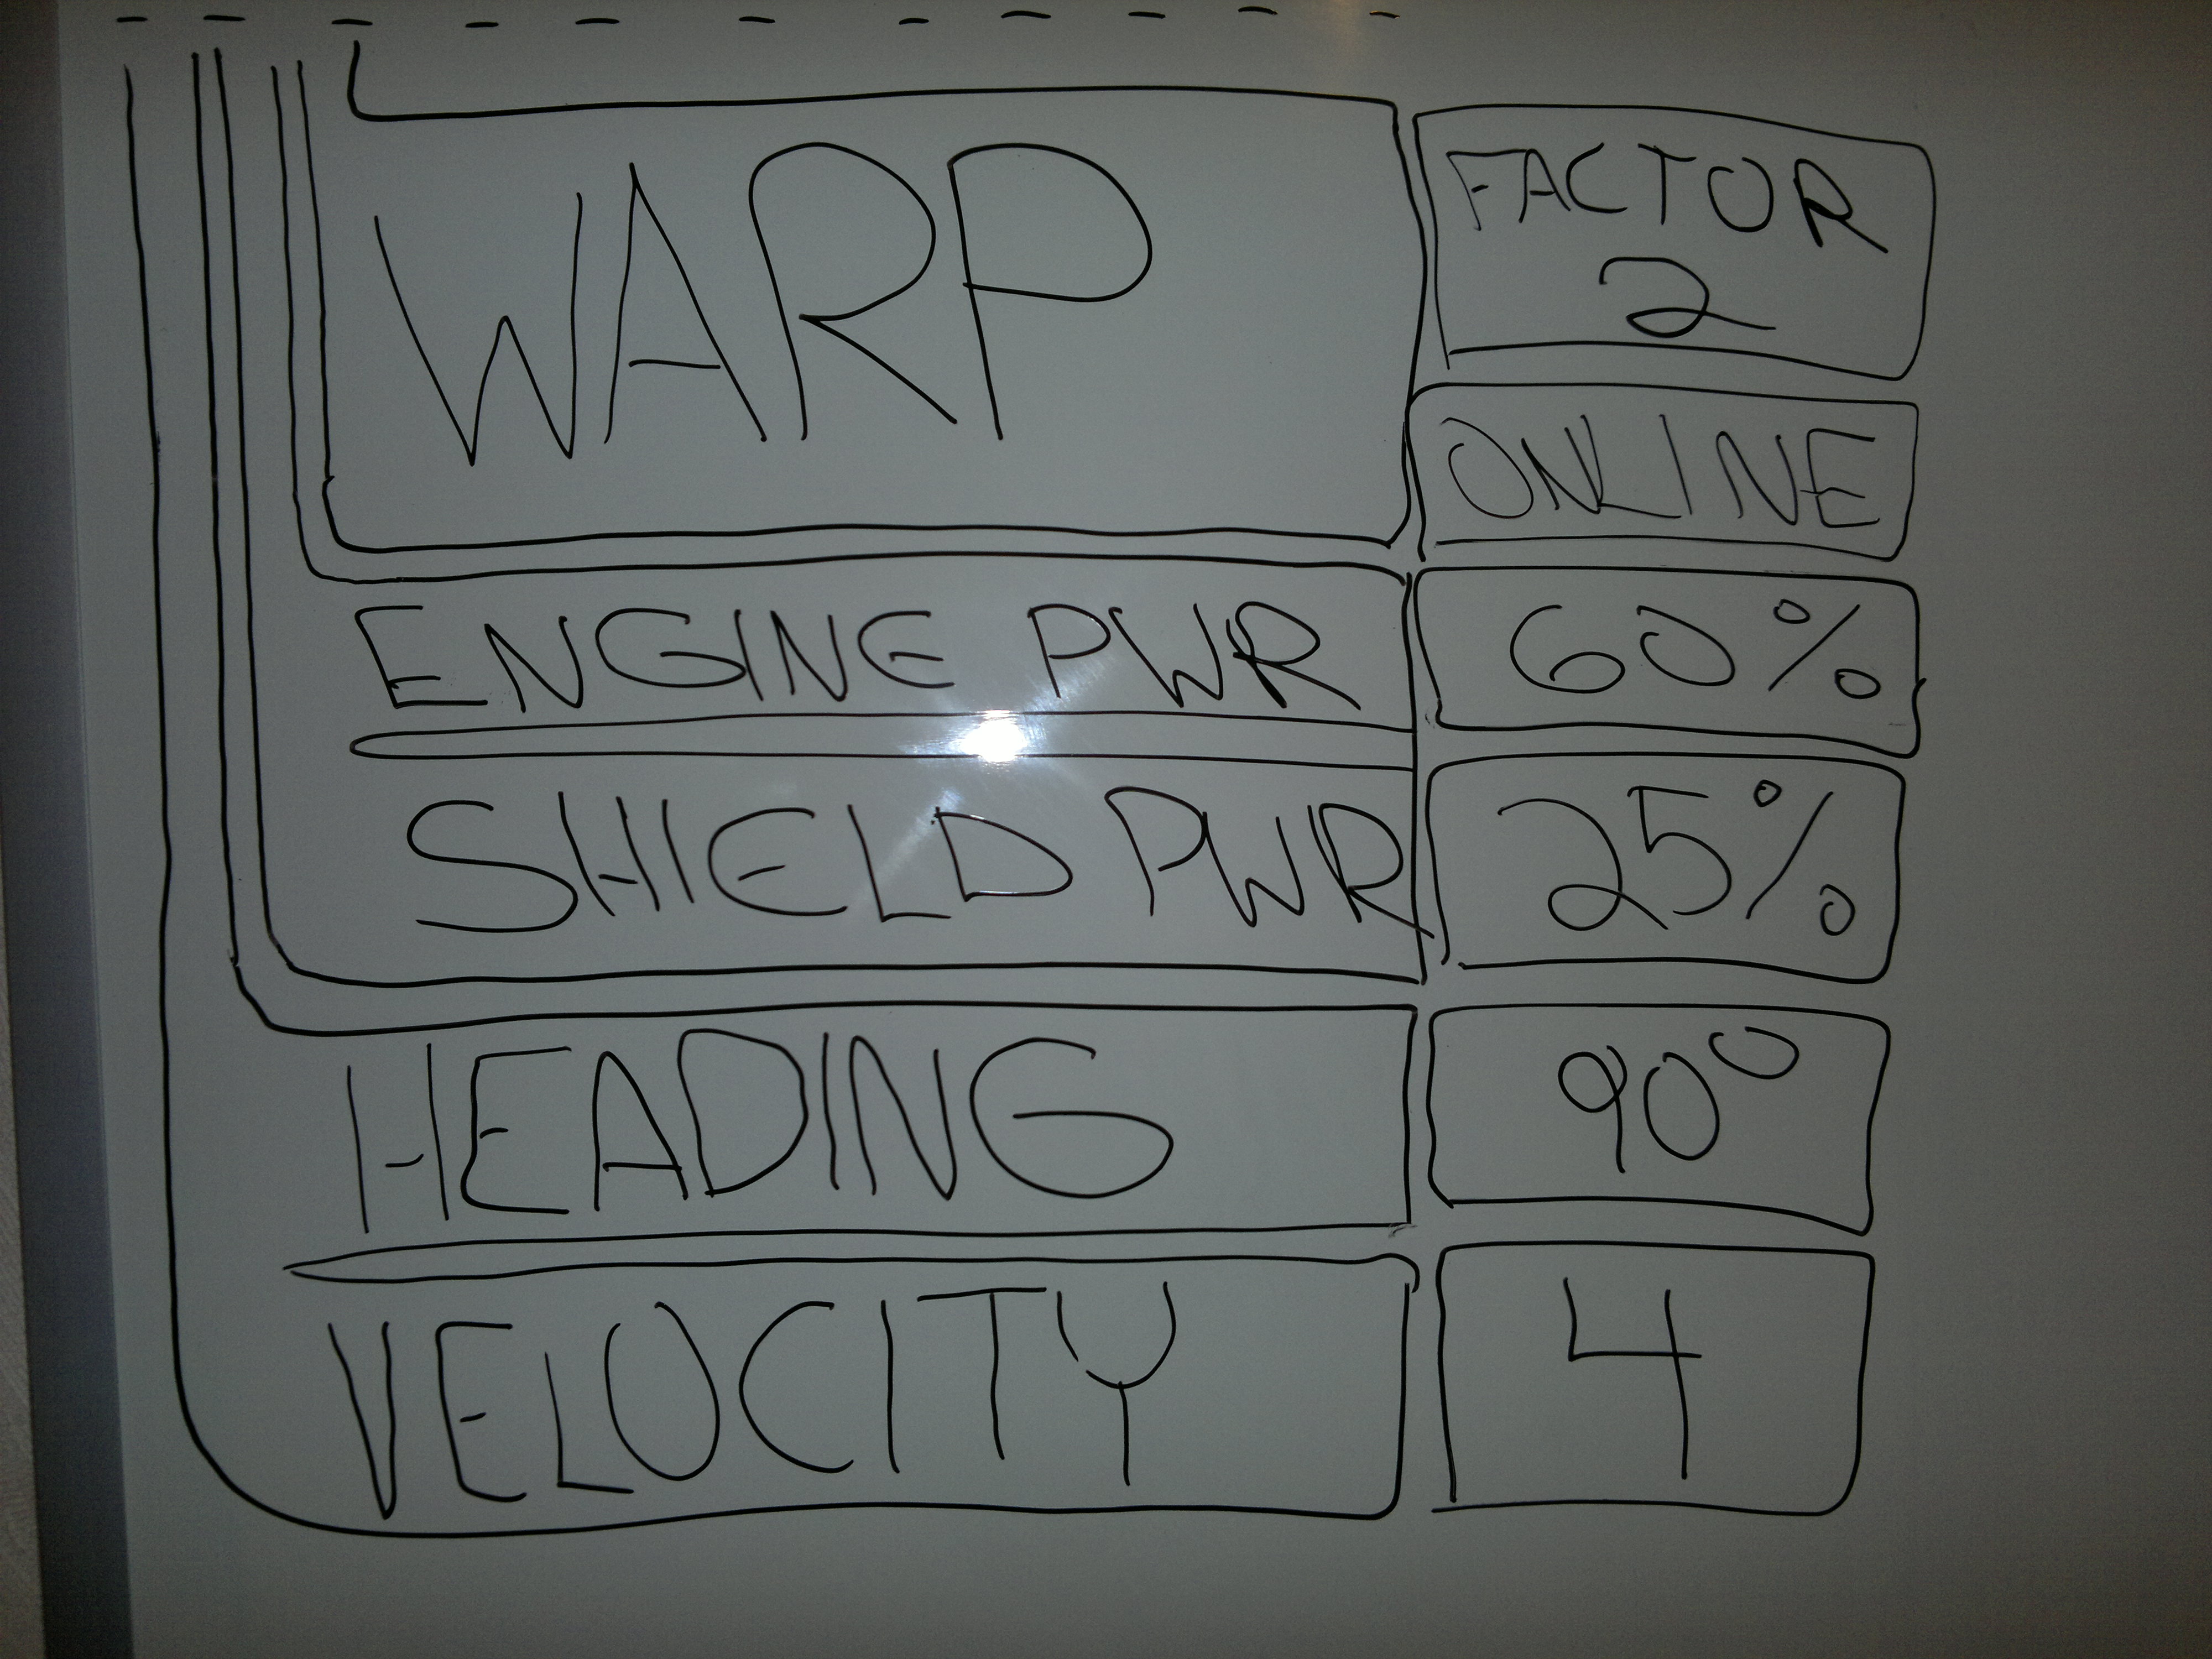 WARP
FACTOR
2
ONLINE
ENGINE PWR 60%
SHIELD PWR 25%
HEADING 90°
VELOCITY 4